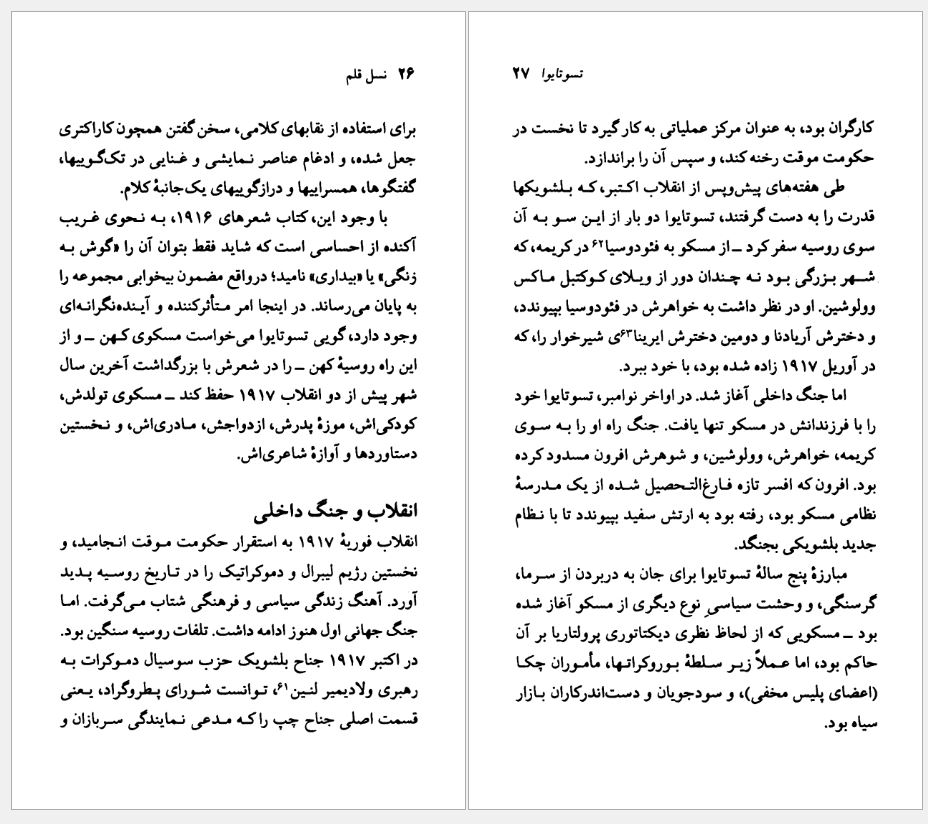 ۲۶ نسل قلم
برای استفاده از نقابهای کلامی، سخن‌گفتن همچون کاراکتری
جعل شده، و ادغام عناصر نمایشی و غنایی در تک‌گوییها،
گفتگوها، همسراییها و درازگوییهای یک‌جانبهٔ کلام.
با وجود این، کتاب شعرهای ۱۹۱۶، به نحوی غریب
آکنده از احساسی است که شاید فقط بتوان آن را «گوش به
زنگی» یا «بیداری» نامید؛ درواقع مضمون بیخوابی مجموعه را
به پایان می‌رساند. در اینجا امر متأثرکننده و آینده‌نگرانه‌ای
وجود دارد، گویی تسوتایوا می‌خواست مسکوی کهن ــ و از
این راه روسیهٔ کهن ــ را در شعرش با بزرگداشت آخرین سال
شهر پیش از دو انقلاب ۱۹۱۷ حفظ کند ــ مسکوی تولدش،
کودکی‌اش، موزهٔ پدرش، ازدواجش، مادری‌اش، و نخستین
دستاوردها و آوازهٔ شاعری‌اش.
انقلاب و جنگ داخلی
انقلاب فوریهٔ ۱۹۱۷ به استقرار حکومت موقت انجامید، و
نخستین رژیم لیبرال و دموکراتیک را در تاریخ روسیه پدید
آورد. آهنگ زندگی سیاسی و فرهنگی شتاب می‌گرفت. اما
جنگ جهانی اول هنوز ادامه داشت. تلفات روسیه سنگین بود.
در اکتبر ۱۹۱۷ جناح بلشویک حزب سوسیال دموکرات به
رهبری ولادیمیر لنین۶۱، توانست شورای پطروگراد، یعنی
قسمت اصلی جناح چپ را که مدعی نمایندگی سربازان و
تسوتایوا ۲۷
کارگران بود، به عنوان مرکز عملیاتی به کار گیرد تا نخست در
حکومت موقت رخنه کند، و سپس آن را براندازد.
طی هفته‌های پیش‌وپس از انقلاب اکتبر، که بلشویکها
قدرت را به دست گرفتند، تسوتایوا دو بار از این سو به آن
سوی روسیه سفر کرد ــ از مسکو به فئودوسیا۶۲ در کریمه، که
شهر بزرگی بود نه چندان دور از ویلای کوکتبل ماکس
وولوشین. او در نظر داشت به خواهرش در فئودوسیا بپیوندد،
و دخترش آریادنا و دومین دخترش ایرینا۶۳ی شیرخوار را، که
در آوریل ۱۹۱۷ زاده شده بود، با خود ببرد.
اما جنگ داخلی آغاز شد. در اواخر نوامبر، تسوتایوا خود
را با فرزندانش در مسکو تنها یافت. جنگ راه او را به سوی
کریمه، خواهرش، وولوشین، و شوهرش افرون مسدود کرده
بود. افرون که افسر تازه فارغ‌التحصیل شده از یک مدرسهٔ
نظامی مسکو بود، رفته بود به ارتش سفید بپیوندد تا با نظام
جدید بلشویکی بجنگد.
مبارزهٔ پنج سالهٔ تسوتایوا برای جان به دربردن از سرما،
گرسنگی، و وحشت سیاسیِ نوع دیگری از مسکو آغاز شده
بود ــ مسکویی که از لحاظ نظری دیکتاتوری پرولتاریا بر آن
حاکم بود، اما عملاً زیر سلطهٔ بوروکراتها، مأموران چکا
(اعضای پلیس مخفی)، و سودجویان و دست‌اندرکاران بازار
سیاه بود.